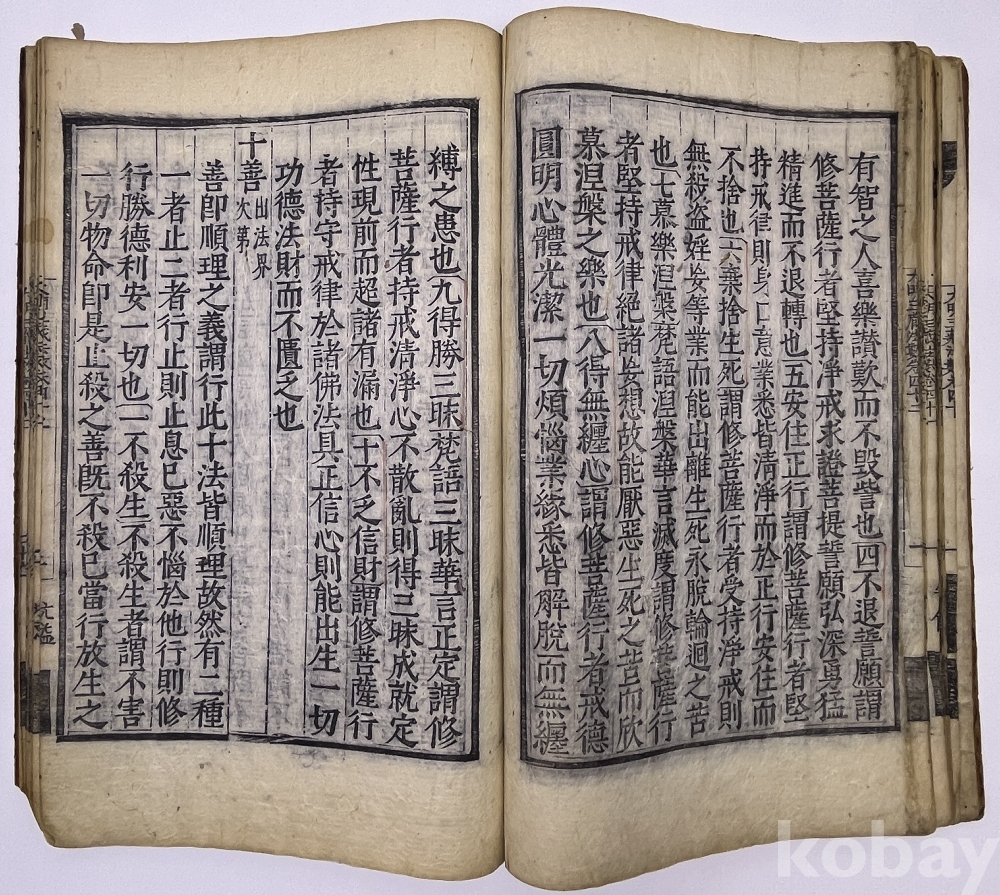 有智之人喜樂讚歎而不毀訾也四不退誓願謂
修菩薩行者堅持淨戒求證菩提誓願弘深勇猛
精進而不退轉也五安住正行謂修菩薩行者堅
持戒律則身口意業悉皆清淨而於正行安住而
不捨也六棄捨生死謂修菩薩行者受持淨戒則
無殺盜婬妄等業而能出離生死永脫輪迴之苦
也七慕樂涅槃梵語涅槃華言滅度謂修菩薩行
者堅持戒律絕諸妄想故能厭惡生死之苦而欣
慕涅槃之樂也八得無纏心謂修菩薩行者戒德
圓明心體光潔一切煩惱業緣悉皆解脫而無纏
縛之患也九得勝三昧梵語三昧華言正定謂修
菩薩行者持戒清淨心不散亂則得三昧成就定
性現前而超諸有漏也十不乏信財謂修菩薩行
者持守戒律於諸佛法具正信心則能出生一切
功德法財而不匱乏也
十善出法界次第
善即順理之義謂行此十法皆順理故然有二種
一者止二者行止則止息已惡不惱於他行則修
行勝德利安一切也一不殺生不殺生者謂不害
一切物命即是止殺之善既不殺已當行放生之
kobay